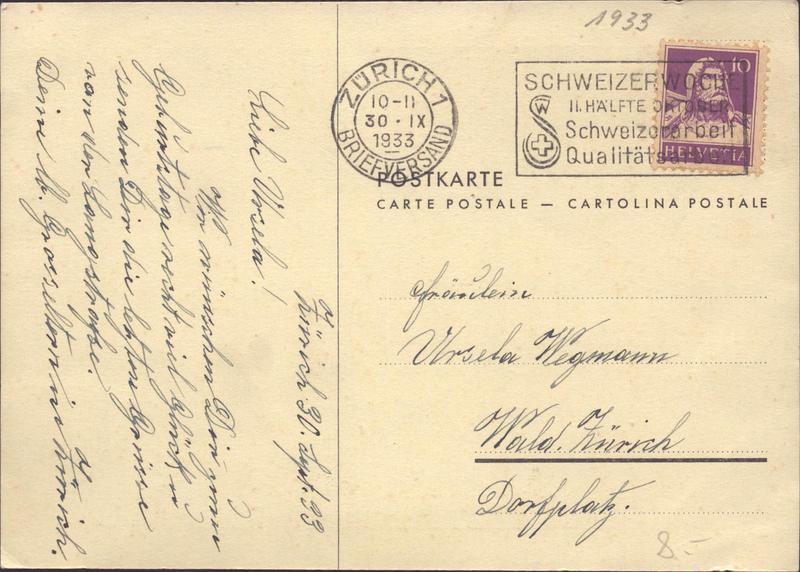 1933
ZÜRICH 1
10-11
30 · IX
1933
BRIEFVERSAND
SCHWEIZERWOCHE
II. HÄLFTE OKTOBER
Schweizerarbeit
Qualitätsarbeit
10
HELVETIA
POSTKARTE
CARTE POSTALE — CARTOLINA POSTALE
Zürich 30. Sept. 33
Liebe Ursela!
Wir wünschen Dir zum
Geburtstage recht viel Glück u
senden Dir die letzten Grüsse
von der Langstraße.
Deine lb. Grosseltern in Zürich.
Fräulein
Ursela Wegmann
Wald. Zürich
Dorfplatz.
8.-